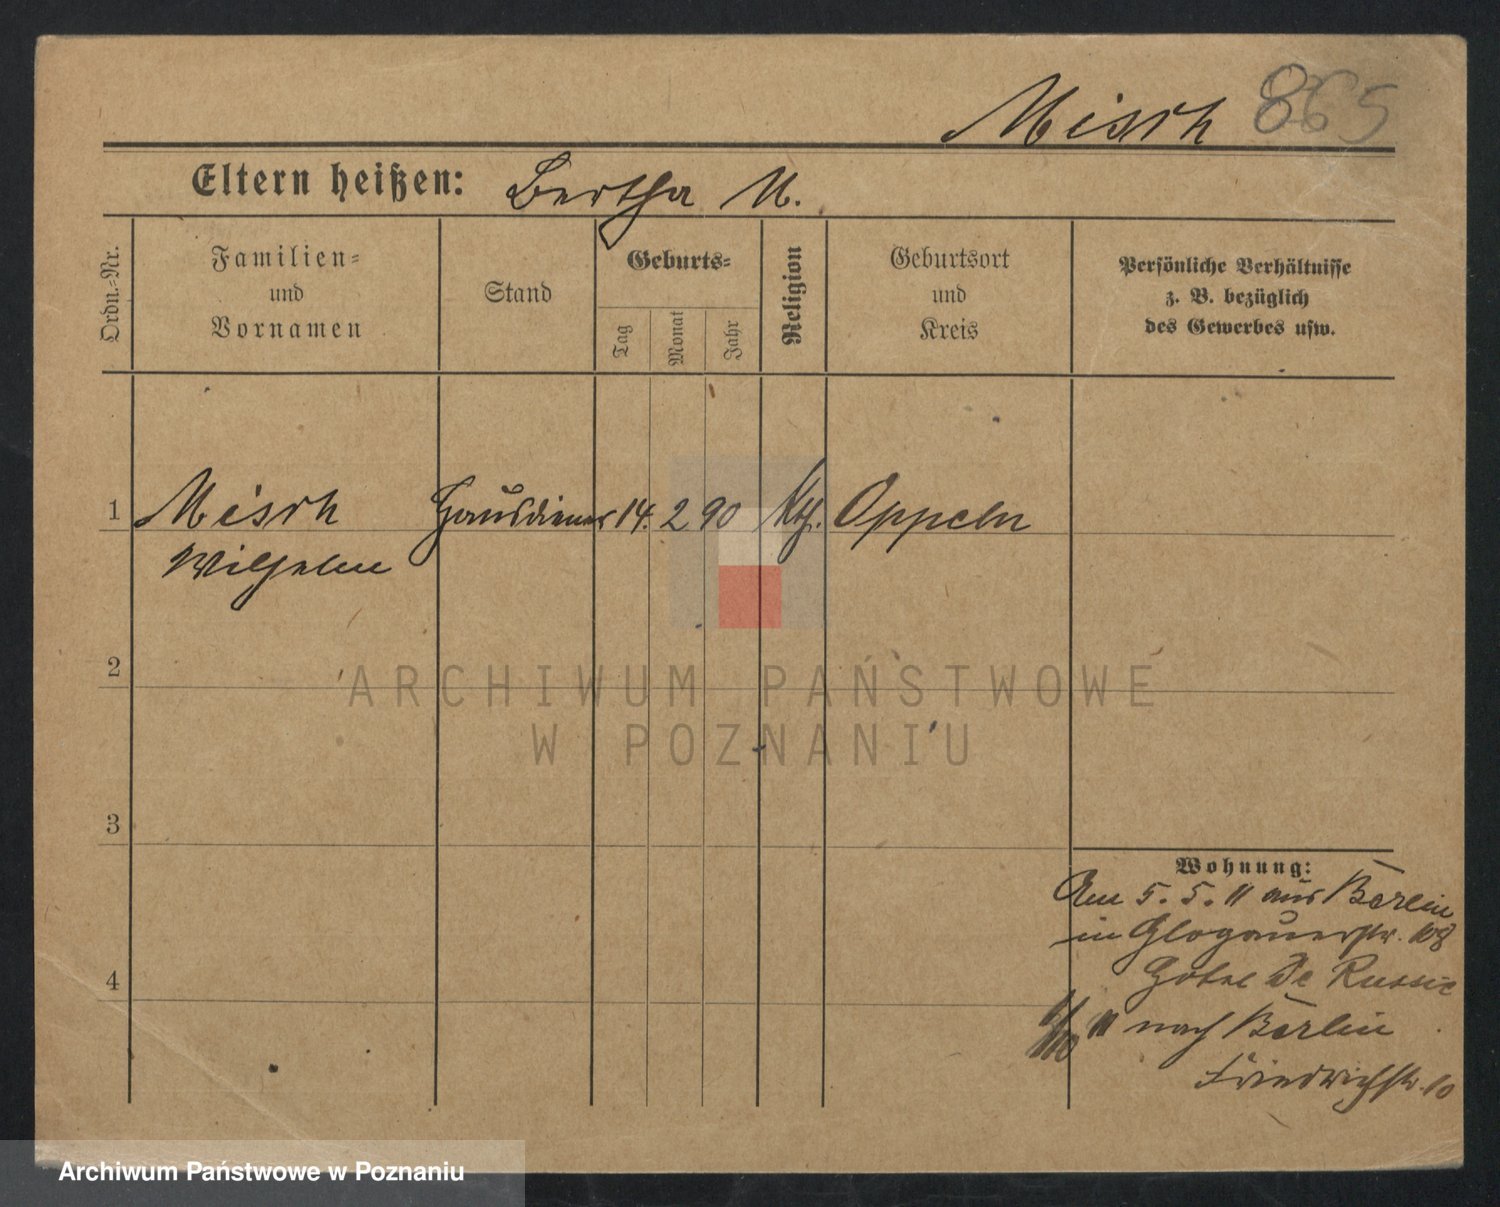 Misch 865
Eltern heißen: Bertha M.
Ordn.-Nr.
Familien-
und
Vornamen
Stand
Geburts-
Tag
Monat
Jahr
Religion
Geburtsort
und
Kreis
Persönliche Verhältnisse
z. B. bezüglich
des Gewerbes usw.
1 Misch Hausdiener 14. 2 90 Kth. Oppeln
Wilhelm
2
ARCHIWUM PAŃSTWOWE
W POZNANIU
3
Wohnung:
Am 5. 5. 11 aus Berlin
in Glogauerstr. 108
Hotel De Russie
11 nach Berlin
4
Friedrichstr. 10
Archiwum Państwowe w Poznaniu